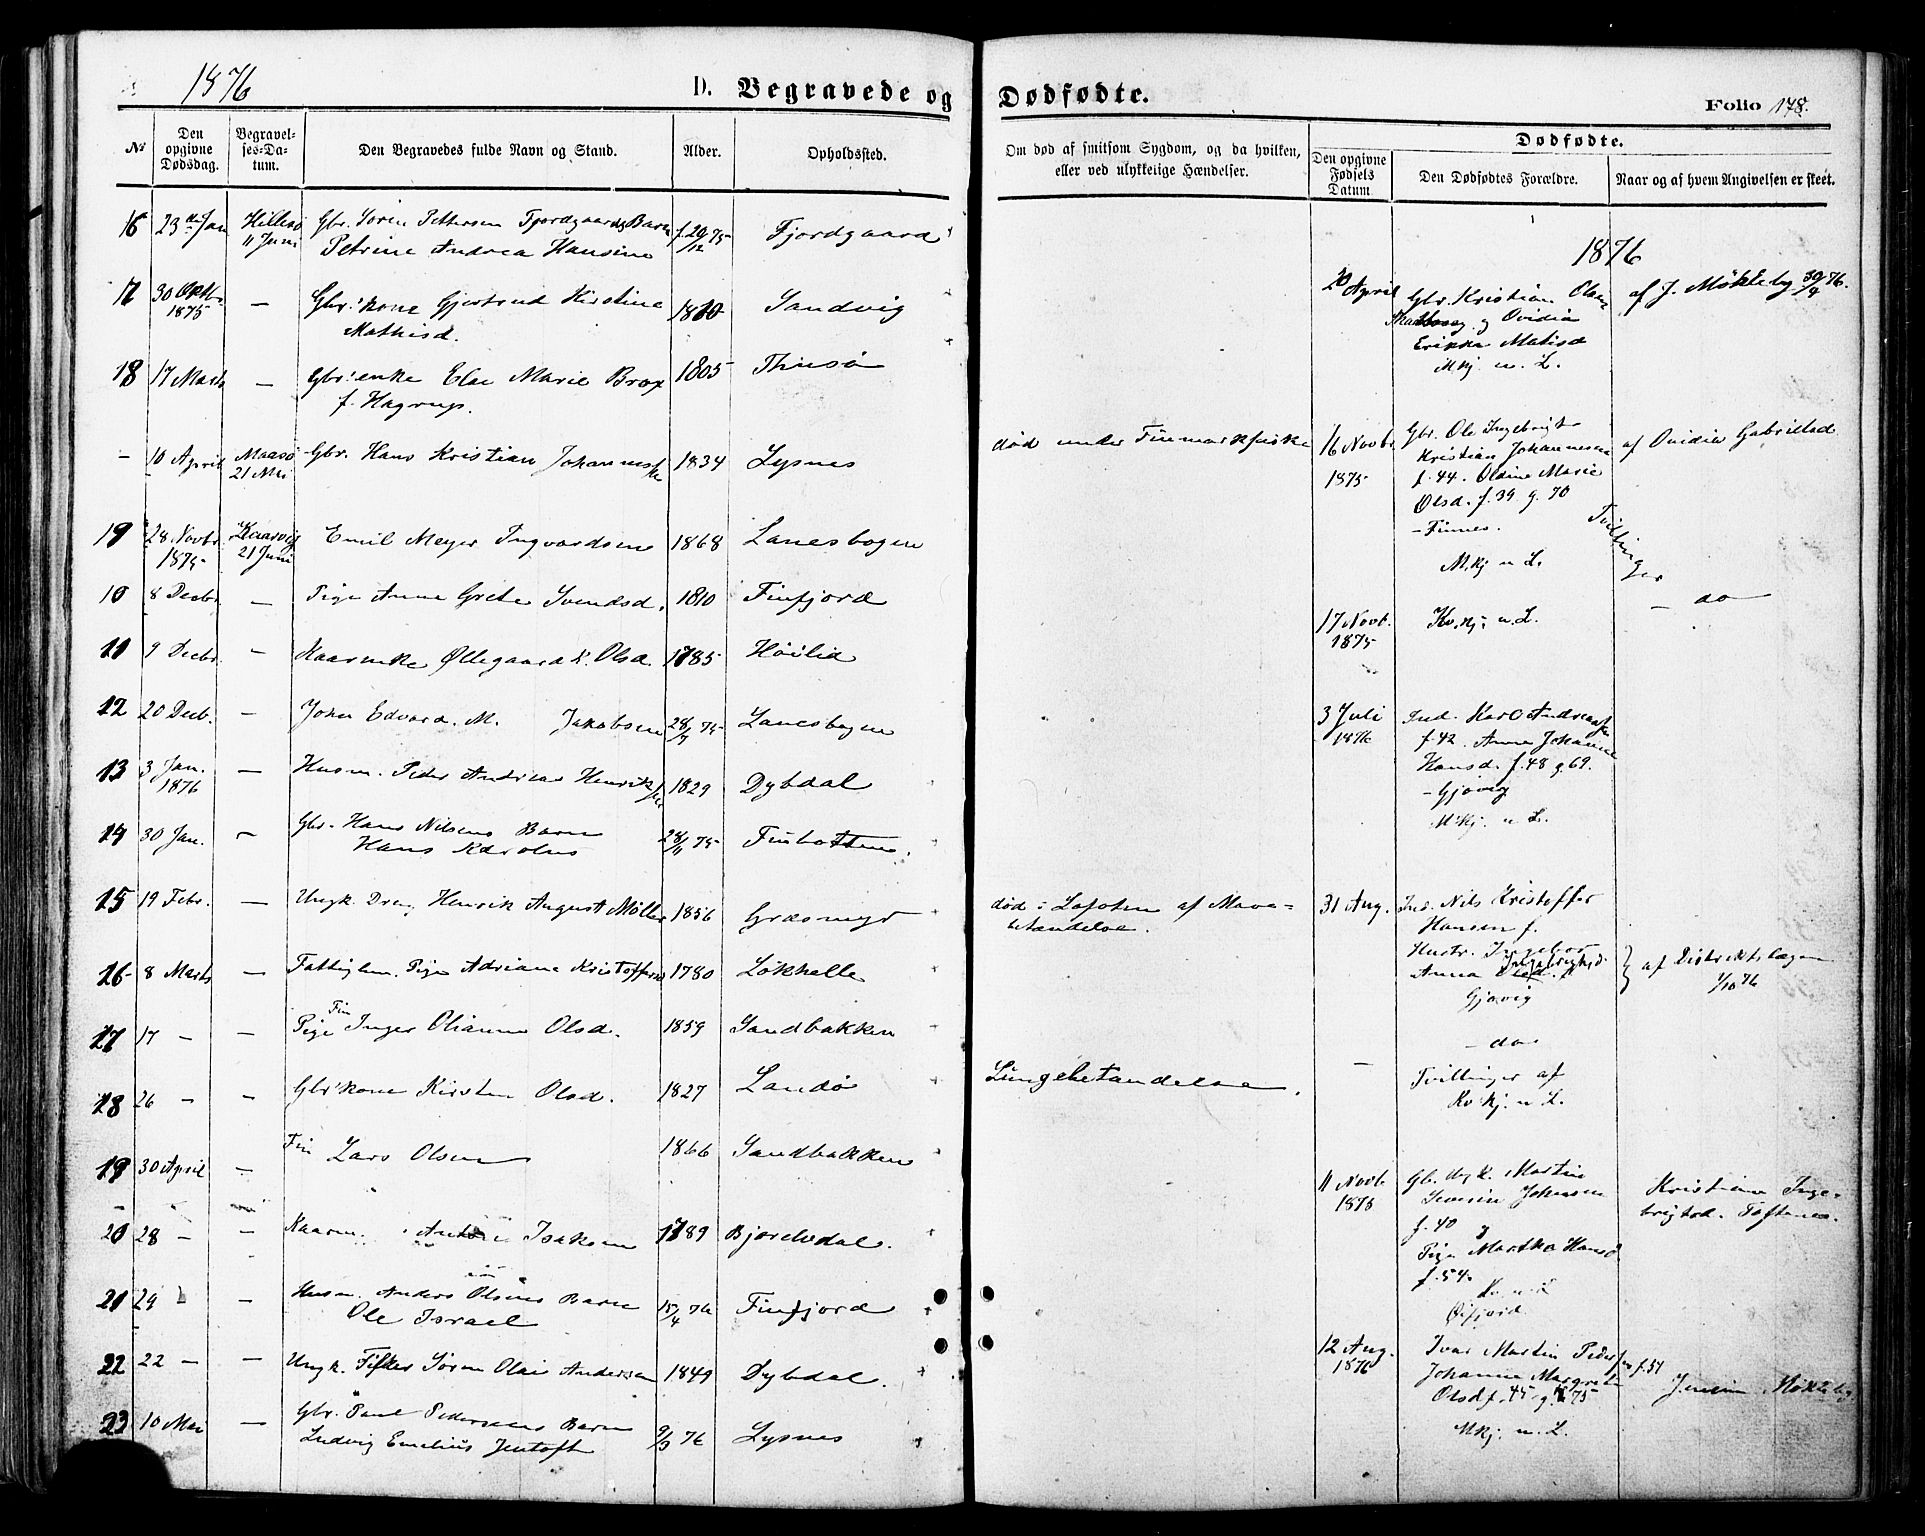 1876
D. Begravede og Dødfødte.
Folio 178.
№
Den opgivne Dødsdag.
Begravelses-Datum.
Den Begravedes fulde Navn og Stand.
Alder.
Opholdssted.
Om død af smitsom Sygdom, og da hvilken, eller ved ulykkelige Hændelser.
Dødfødte.
Den opgivne Fødsels Datum
Den Dødfødtes Forældre.
Naar og af hvem Angivelsen er skeet.
16 23de Jan Hillesø 11 Juni Gbr. Sören Pettersen Fjordgaards Barn f. 29/12 75 Fjordgaard
Petrine Andrea Hansine
17 30 Oktb. 1875 — Gbr.kone Gjertrud Kirstine 1810 Sandvig
Mathisd.
18 17 Marts — Gbr.enke Else Marie Brox 1805
f. Hagrups.
- 10 April Maasø 21 Mai Gbr. Hans Kristian Johannessen 1834 Lysnes død under Finmarkfiske
19 28 Novbr. 1875 21 Juni Emil Meyer Ingvardsen 1868 Lanesbogen
10 8 Decbr. — Pige Anne Grete Svendsd. 1810 Finfjord
11 9 Decbr. — Øllegaard K. Olsd. 1785 Høilid
12 20 Decb. — John Edvard. M. Jakobsen 28/9 75 Lanesbogen
13 3 Jan. 1876 — Husm. Peder Andreas Henriksen 1829 Dybdal
14 30 Jan. — Gbr. Hans Nilsens Barn 28/11 75 Finbotten.
Hans Karolus
15 19 Febr. — Ungk. Dreng Henrik August Möller 1856 Græsmyr død i Lofoten af Mave=
betændelse.
16 8 Marts — Fattiglem. Pige Adriane Kristoffersd 1780 Løkhelle
17 17 — — Fin
Pige Inger Olianne Olsd. 1859 Sandbakken
18 26 — — Gbr'kone Kirsten Olsd. 1827 Landø Lungebetændelse.
19 30 April — Fin Lars Olsen 1866 Sandbakken
20 28 — — Kaarm. Isaksen 1789 Bjorelvdal.
21 29 — Husm. Anders Olsens Barn 15/4 76 Finfjord
Ole Israel
22 22 — — Ungk. Fisker Sören Olai Andersen 1849 Dybdal.
23 10 Mai — Gbr. Paul Pedersens Barn 9/3 76 Lysnes
Ludvig Emelius Jentoft
1876
20 April Gbr. Kristian Olsen af J. Møkleby 30/4 76.
og Ovidia
Erikke Matisd
Mkj. u. L.
16 Novbr. 1875 Gbr. Ole Ingebrigt af Ovidia Gabrielsd
Kristian Johannesen
f. 44. Oldine Marie
Olsd. f. 39 g. 70
- Finnes.
Mkj u L.
Tvillinger
17 Novb. 1875 Kv.kj. u. L. — do —
3 Juli 1876 Ind. Karl Andreassen
f. 42. Anne Johanne
Hansd. f. 48 g. 69.
- Gjøvig
Mkj. u L.
31 Aug. Ind. Nils Kristoffer
Hansen f.
Hustr. Ingebor
Anna Ingebrigtsd. af Distriktslægen
1/10 76
Gjøvig
— — do
Tvillinger af
Kv kj. u. L.
11 Novb. 1875 Gb. Ungk. Martin Kristian Inge=
Severin Johnsen brigtsd. Toftenes.
f. 40 g
Pige Martha Hansd
f. 54.
Øifjord
12 Aug. 1876 Ivar Martin Pedersen f. 54
Johanne Margrete Jensin Møkleby
Olsd f. 45 g. 75
Mkj. u. L.